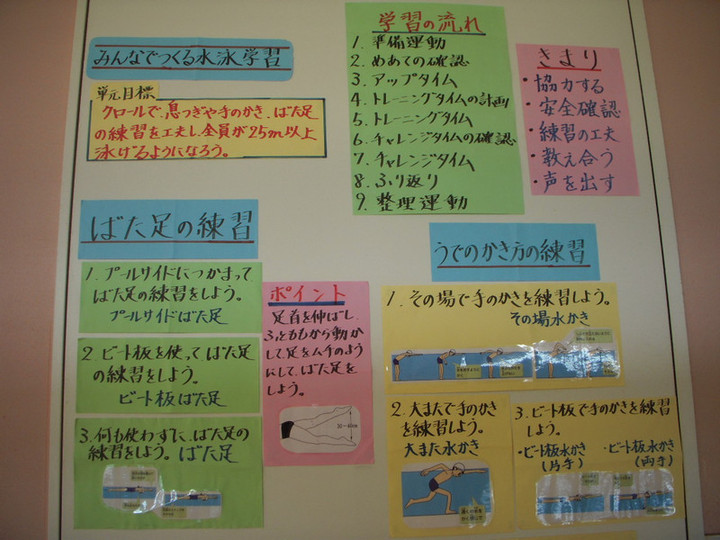 みんなでつくる水泳学習
単元目標
クロールで、息つぎや手のかき、ばた足
の練習を工夫し、全員が25m以上
泳げるようになろう。
学習の流れ
1. 準備運動
2. めあての確認
3. アップタイム
4. トレーニングタイムの計画
5. トレーニングタイム
6. チャレンジタイムの確認
7. チャレンジタイム
8. ふり返り
9. 整理運動
きまり
・協力する
・安全確認
・練習の工夫
・教え合う
・声を出す
ばた足の練習
1. プールサイドにつかまって
ばた足の練習をしよう。
プールサイドばた足
2 ビート板を使ってばた足
の練習をしよう。
ビート板ばた足
3. 何も使わずに、ばた足の
練習をしよう。ばた足
ポイント
足首を伸ばし、
ふとももから動か
して足をムチのよう
にして、ばた足を
しよう。
うでのかき方の練習
1. その場で手のかきを練習しよう。
その場水かき
2. 大またで手のかき
を練習しよう。
大また水かき
3. ビート板で手のかきを練習
しよう。
・ビート板水かき
(片手)
・ビート板水かき
(両手)